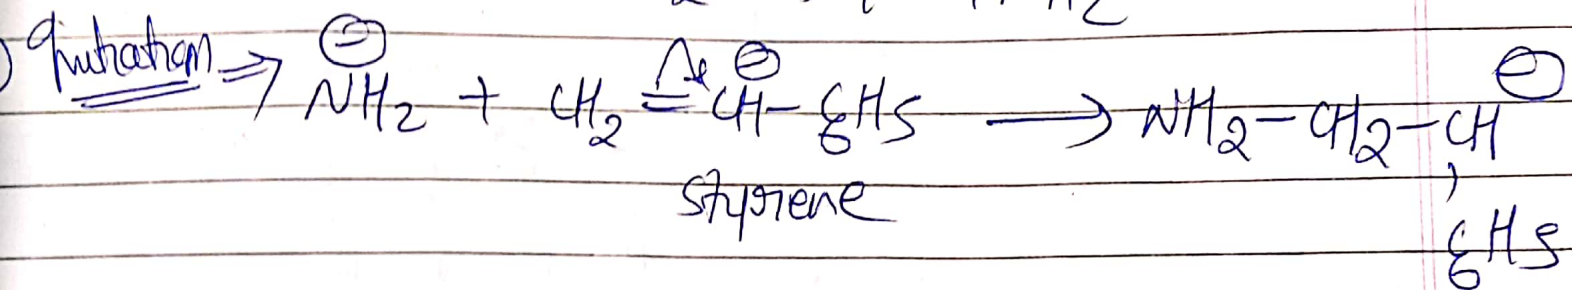 Initiation ⇒ NH2⊖ + CH2 = CH⊖ - C6H5 → NH2 - CH2 - CH⊖
styrene
C6H5